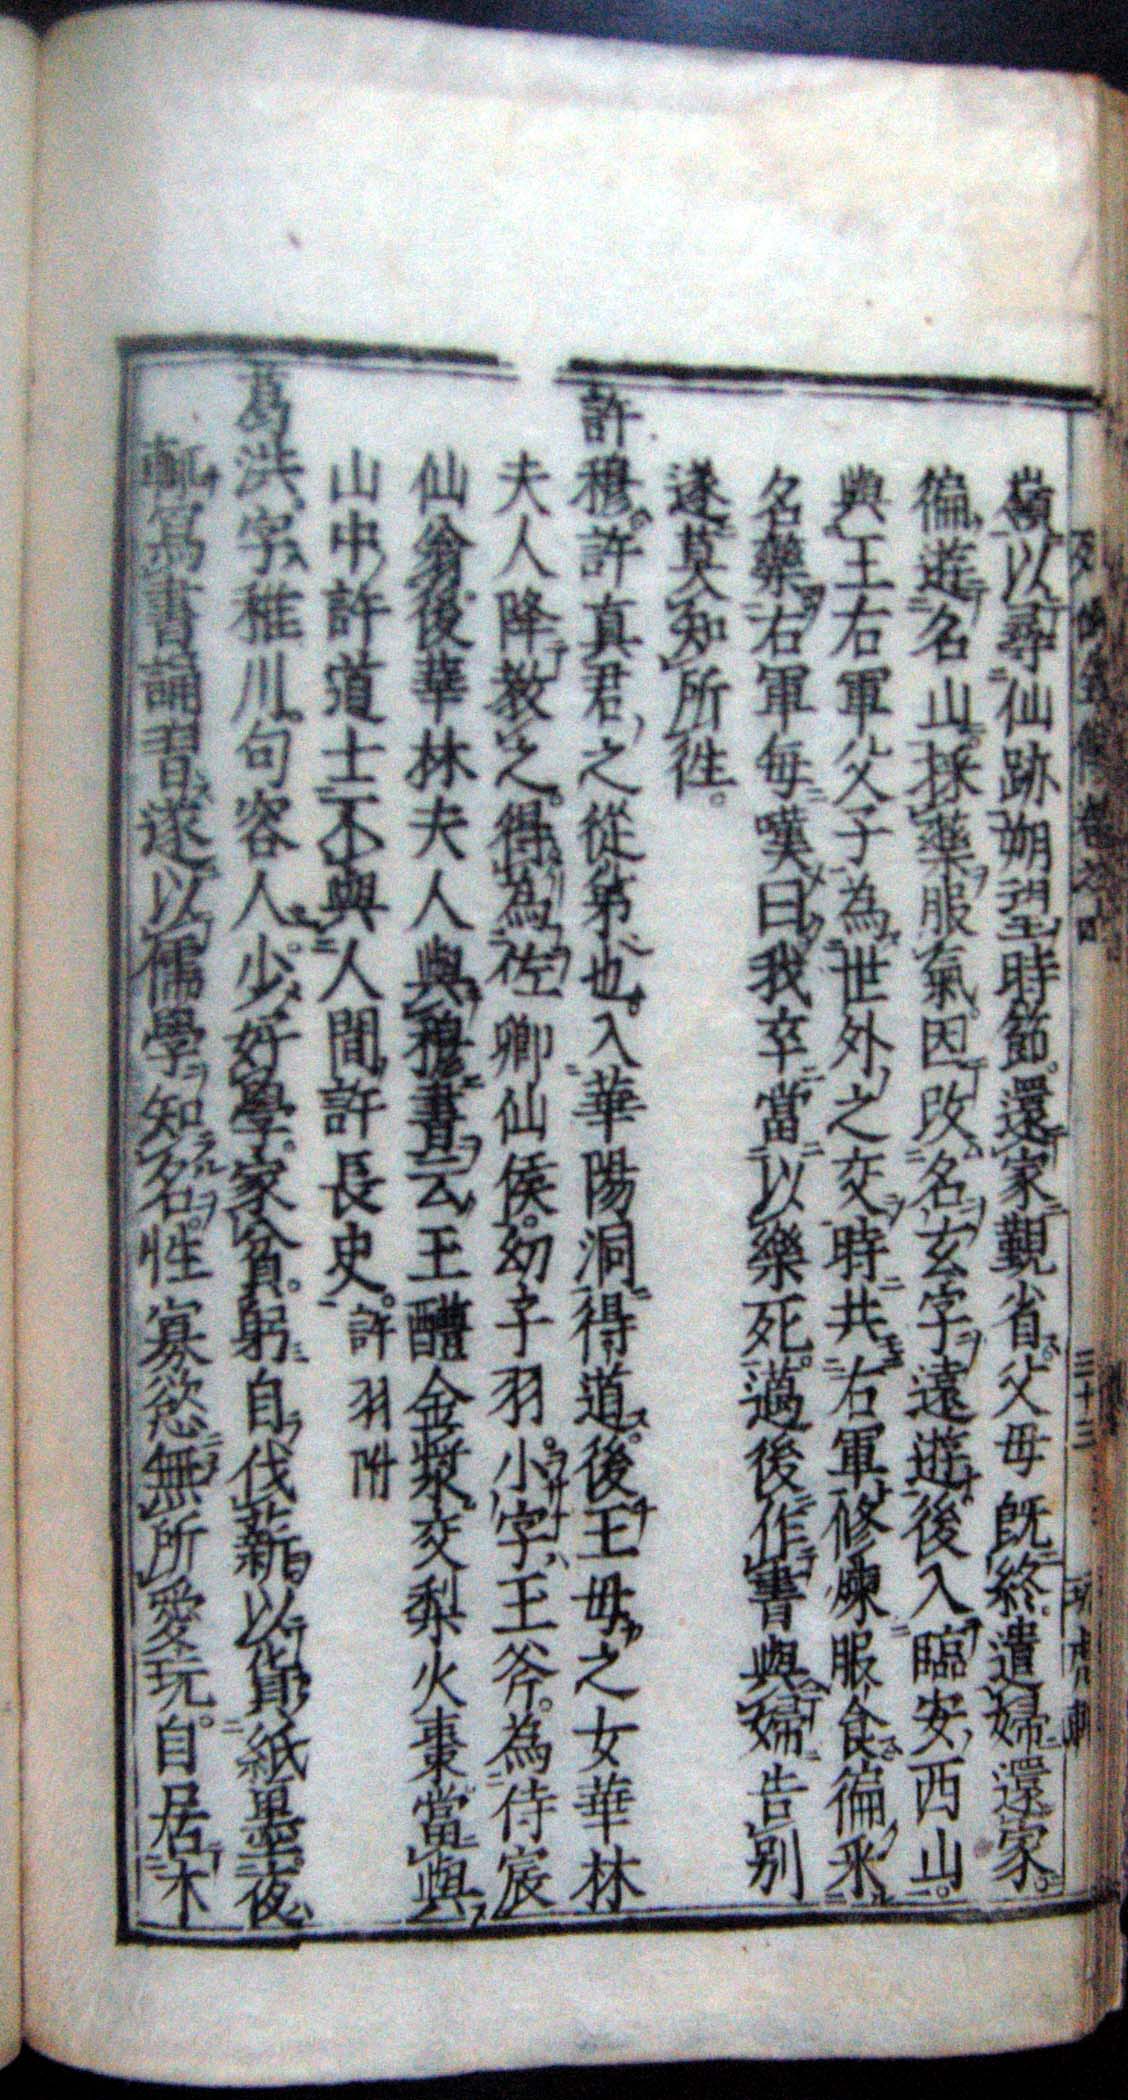 嶺以尋仙跡朔望時節還家覲省父母既終遣婦還家
徧遊名山採藥服氣因改名玄字遠遊後入臨安西山
與王右軍父子為世外之交時共右軍修煉服食徧采
名藥右軍每嘆曰我卒當以樂死邁後作書與婦告別
遂莫知所徃
許穆許真君之從第也入華陽洞得道後王母之女華林
夫人降教之得為佐卿仙侯幼子羽小字王斧為侍宸
仙翁後華林夫人與穆書云王醴金漿交梨火棗當與
山中許道士不與人間許長史 許羽附
葛洪字稚川句容人少好學家貧躬自伐薪以貨紙墨夜
輒寫書誦習遂以儒學知名性寡慾無所愛玩自居木
三十三